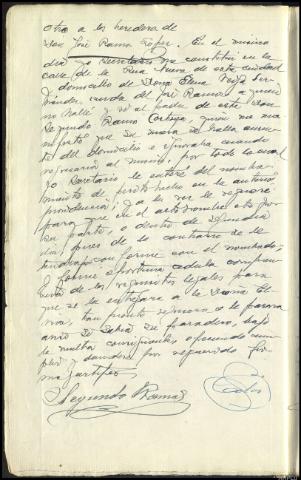 Otra a los herederos de
Don José Ramos López. En el mismo
día yo Secretario me constituí en la
casa de la Rúa Nueva de esta ciudad
y domicilio de Doña Elena
viuda del José Ramos a quien
no hallé y si al padre de este Don
Segundo Ramos quien me ma
nifestó que su nuera se halla ausen
te del domicilio e ignoraba cuando
regresaría al mismo; por todo lo cual
yo Secretario le enteré del nombra
miento de perito hecho en la anterior
providencia; y a la vez le requerí
para que en el acto nombre otro por
su parte o dentro de segundo
día pues de lo contrario se le
tendrá por conforme con el nombrado;
y formé oportuna cédula compren
siva de los requisitos legales para
que se la entregara a la Doña Ele
na, tan pronto regrese o le pasara
aviso si sabía su paradero, bajo
la multa correspondiente ofreciendo cum
plir y dándose por requerido fir
ma, certifico
Segundo Ramos